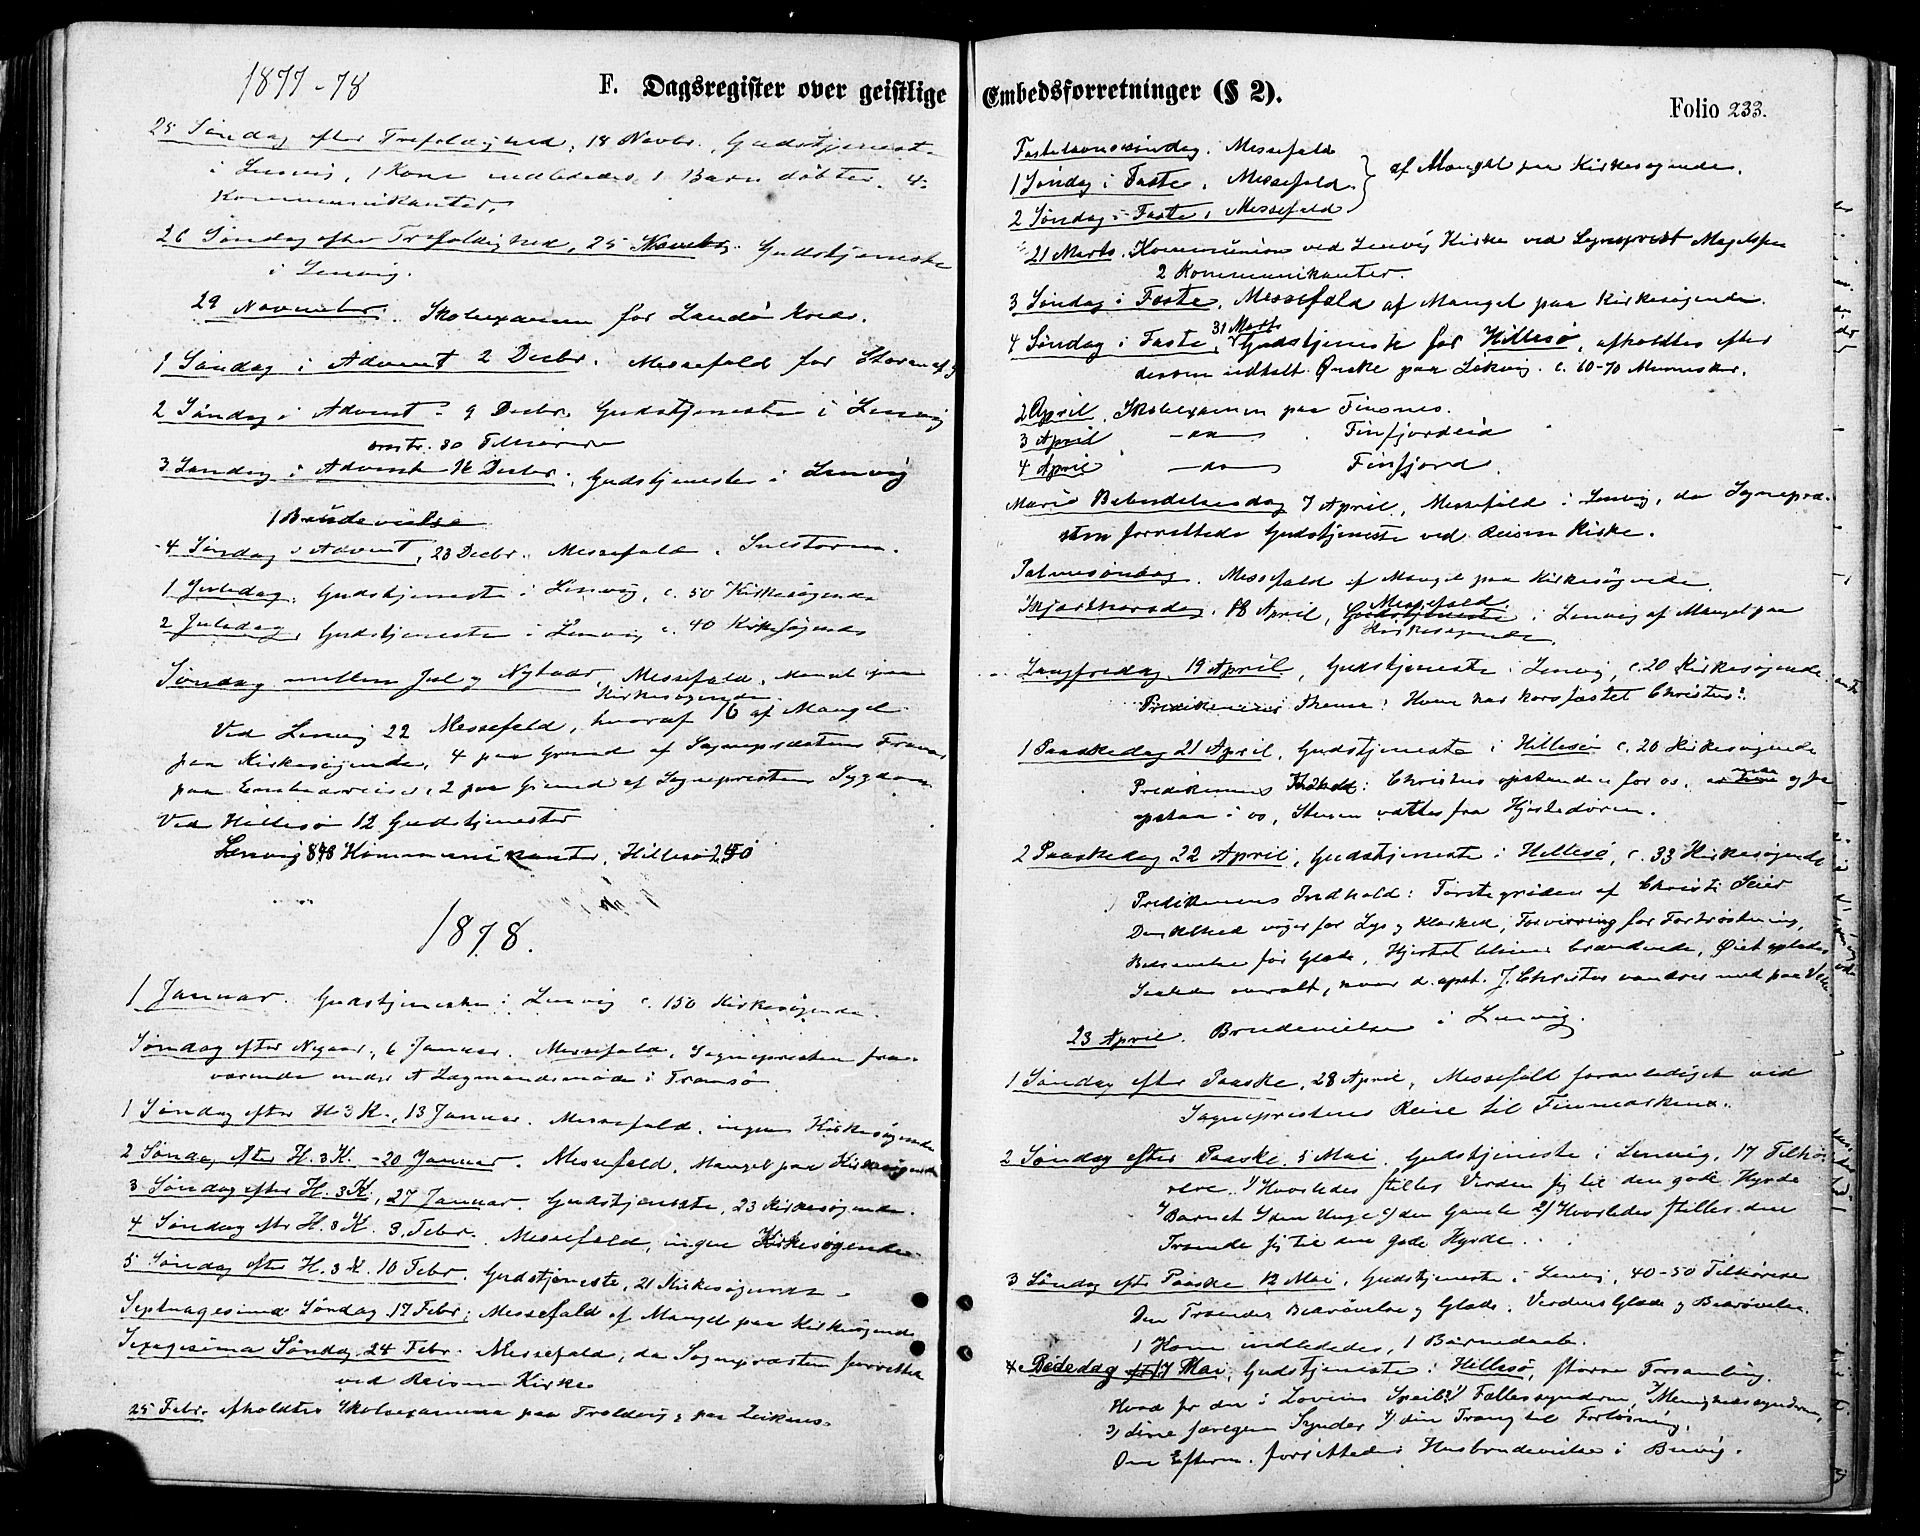 1877-78
F. Dagsregister over geistlige
25 Søndag efter Trefoldighed, 18 Novbr., Gudstjeneste
i Lenvig, 1 Kone indlededes, 1 Barn døbtes. 4
Kommunikanter.
26 Søndag efter Trefoldighed, 25 Novbr. Gudstjeneste
i Lenvig.
29 November. Skolexamen for Landø Kreds.
1 Søndag i Advent 2 Decbr. Messefald for Storm af
2 Søndag i Advent - 9 Decbr. Gudstjeneste i Lenvig
30 Tilhørere
3 Søndag i Advent 16 Decbr., Gudstjeneste i Lenvig
1 Brudevielse
4 Søndag i Advent, 23 Decbr. Messefald.
1 Juledag, Gudstjeneste i Lenvig, c. 50 Kirkesøgende
2 Juledag, Gudstjeneste i Lenvig c. 40 Kirkesøgende
Søndag mellem Jul og Nytaar, Messefald, Mangel paa
Kirkesøgende.
Ved Lenvig 22 Messefald, hvoraf 16 af Mangel
paa Kirkesøgende, 4 paa Grund af Sognepræstens Fravær
paa Embedsreiser, 2 paa Grund af Sognepræstens Sygdom
Ved Hillesø 12 Gudstjenester
Lenvig 848 Kommunikanter, Hillesø
1878.
1 Januar. Gudstjeneste i Lenvig c. 150 Kirkesøgende.
Søndag efter Nyaar, 6 Januar. Messefald, Sognepræsten fra-
værende under Lagmandsmøde i Tromsø
1 Søndag efter H 3 K., 13 Januar. Messefald, ingen Kirkesøgende
2 Søndag efter H. 3 K. - 20 Januar. Messefald, Mangel paa Kirkesøgende
3 Søndag efter H. 3 K., 27 Januar. Gudstjeneste, 23 Kirkesøgende.
4 Søndag eftr H. 3 K. 3 Febr. Messefald, ingen Kirkesøgende
5 Søndag efter H. 3 K. 10 Febr. Gudstjeneste, 21 Kirkesøgende
Septuagesima Søndag 17 Febr; Messefald af Mangel paa Kirkesøgende
Sexagesima Søndag 24 Febr. Messefald, da Sognepræsten forrettede
ved Reisen Kirke
25 Febr. afholdtes Skolexamen paa Troldvig & paa
Embedsforretninger (§ 2).
Folio 233.
Fastelavnssøndag. Messefald
1 Søndag i Faste, Messefald } af Mangel paa Kirkesøgende.
2 Søndag i Faste, Messefald
21 Marts. Kommunion ved Lenvig Kirke ved Sognepræst Magelssen
2 Kommunikanter
3 Søndag i Faste, Messefald af Mangel paa Kirkesøgende.
4 Søndag i Faste, 31 Marts Gudstjeneste for Hillesø, afholdtes efter
dersom udtalt Ønske paa Lekvig. c. 60-70 Mennesker.
2 April. Skolexamen paa Finsnes.
3 April - do - Finfjordeid
4 April - do - Finfjord.
Mariæ Bebudelsesdag 7 April, Messefald i Lenvig, da Sognepræ-
sten forrettede Gudstjeneste ved Reisen Kirke.
Palmesøndag. Messefald af Mangel paa Kirkesøgende
Skjærthorsdag. 18 April, Gudstjeneste Messefald i Lenvig af Mangel paa
Kirkesøgende
Langfredag, 19 April, Gudstjeneste i Lenvig, c. 20 Kirkesøgende
Prædikenens Thema: Hvem har korsfæstet Christus?
1 Paaskedag 21 April, Gudstjeneste i Hillesø c. 20 Kirkesøgende
Prædikenens Indhold: Christus opstanden for os, maa og
opstaa i os, Stenen væltes fra Hjertedøren.
2 Paaskedag 22 April, Gudstjeneste i Hillesø, c. 33 Kirkesøgende
Prædikenens Indhold: Førstegrøden af Christi Seier
Dunkelhed viger for Lys og Klarhed, Forvirring for Fortrøstning,
Bedrøvelse for Glæde, Hjertet bliver brændende, Øiet oplades
Saaledes overalt, hvor d. opst. J. Christus vandrer med paa Veien.
23 April. Brudevielse i Lenvig.
1 Søndag efter Paaske, 28 April, Messefald foranlediget ved
Sognepræstens Reise til Finmarken.
2 Søndag efter Paaske, 5 Mai. Gudstjeneste i Lenvig, 17 Tilhø-
rere. 1) Hvorledes stiller Verden sig til den gode Hyrde
Barnet den Unge den Gamle 2) Hvorledes stiller den
Troende sig til den gode Hyrde.
3 Søndag eftr Paaske. 12 Mai, Gudstjeneste i Lenvig, 40-50 Tilhørere
Den Troendes Bedrøvelse og Glæde. Verdens Glæde og Bedrøvelse.
1 Kone indlededes, 1 Barnedaab.
Bededag 17 Mai, Gudstjeneste i Hillesø, større Forsamling.
Hvad ser du i Lovens Speil? 1) Fællessynderen, 2) Menighedssynderen,
3) dine særegne Synder 4) din Trang til Forløsning.
Om Efterm. forrettedes Husbrudevielse i